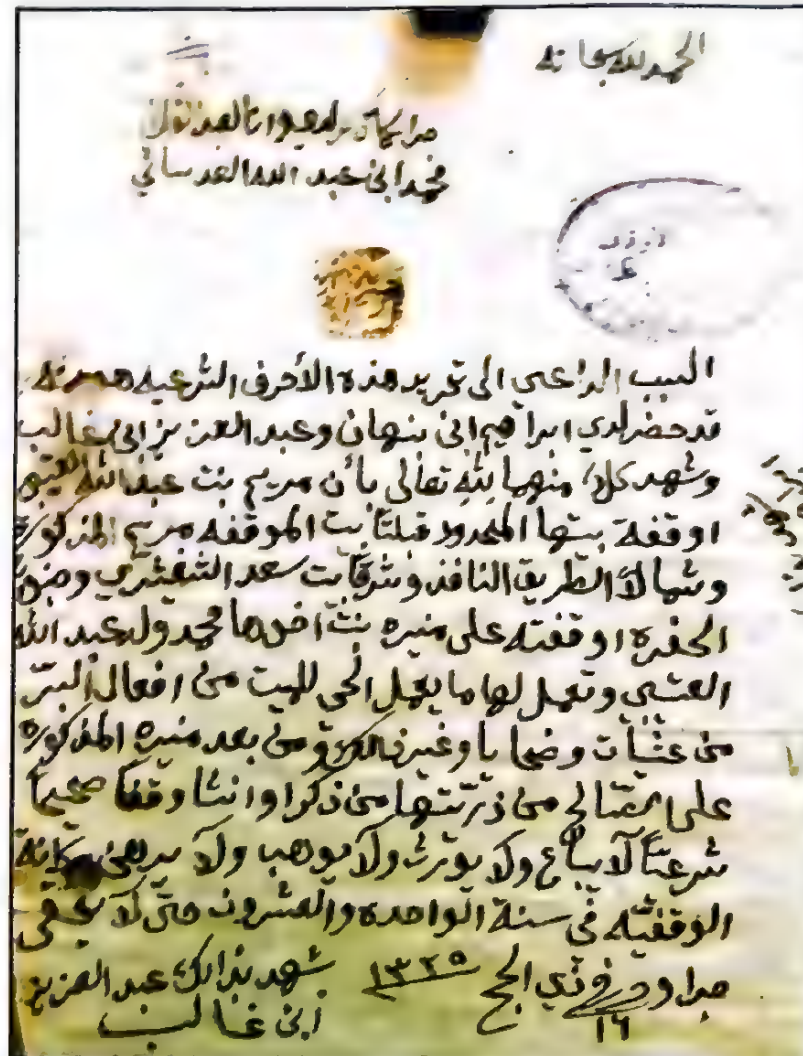 الحمد لله سبحانه
محمد ابن عبد الله العدساني
السبب الداعي الى تحرير هذه الأحرف الشرعيه هو انه
قد حضر لدي ابراهيم ابن نبهان وعبد العزيز ابن غالب
وشهد كلا منهما لله تعالى بأن مريم بنت عبد الله
اوقفة بيتها المحدود قبلتاً بيت الموقفه مريم المذكورة
وشمالاً الطريق النافذ وشرقاً بيت سعد الشغثري
الحفره اوقفته على منيره بنت اخوها محمد ولد عبد الله
وتعمل لها ما يعمل الحي للميت من افعال البر
من عشيات وضحايا وغير ذالك ومن بعد منيره المذكوره
على من ذريتها من ذكر او انثا وقفاً صحيحاً
شرعياً لا يباع ولا يورث ولا يوهب ولا يرهن وكانة
الوقفيته في سنة الواحده والعشرون حتى لا يخفى
في ذي الحج ١٣٢٥ شهد بذالك عبد العزيز
١٦ ابن غالب